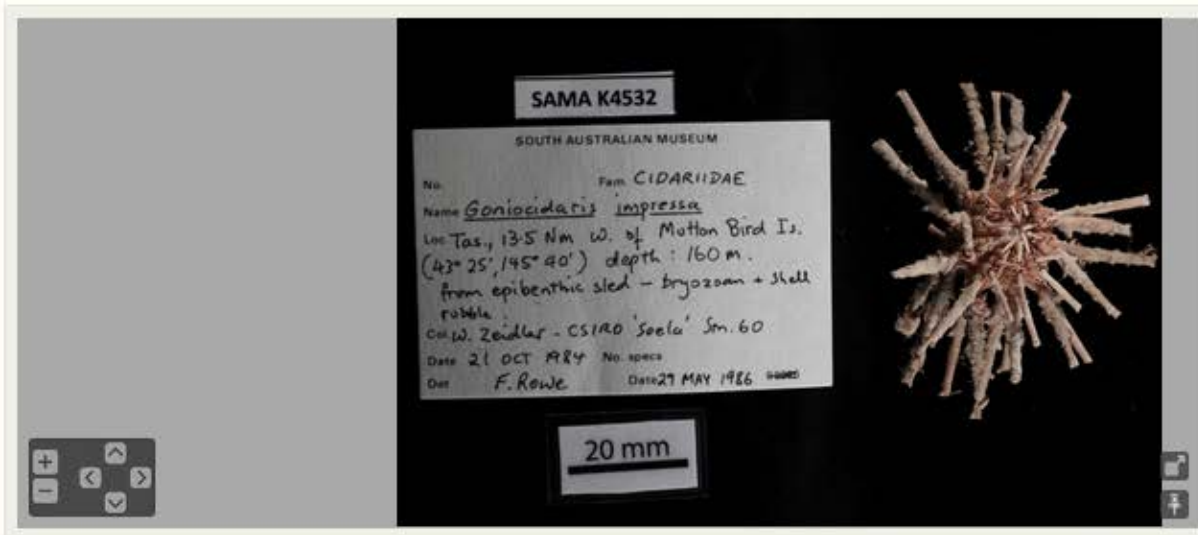 SAMA K4532
SOUTH AUSTRALIAN MUSEUM
No. Fam. CIDARIIDAE
Name Goniocidaris impressa
Loc. Tas., 13.5 Nm W. of Mutton Bird Is.
(43° 25', 145° 40') depth : 160 m.
from epibenthic sled - bryozoan + shell
rubble.
Col. W. Zeidler - CSIRO 'Soela' Stn. 60
Date 21 OCT 1984 No. specs
Det F. Rowe Date 29 MAY 1986
20 mm